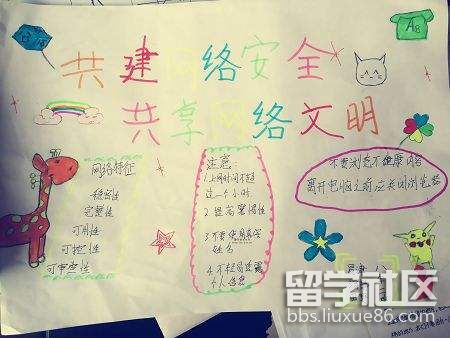 共建网络安全
共享网络文明
AB
网络特征
稳定性
完整性
可用性
可控性
可审查性
注意
1.上网时间不超
过一个小时
2 提高警惕性
3 不要使用真实
姓名
4 不轻易泄露
个人信息
不要浏览不健康内容
离开电脑之前应关闭浏览器
留学社区
bbs.liuxue86.com